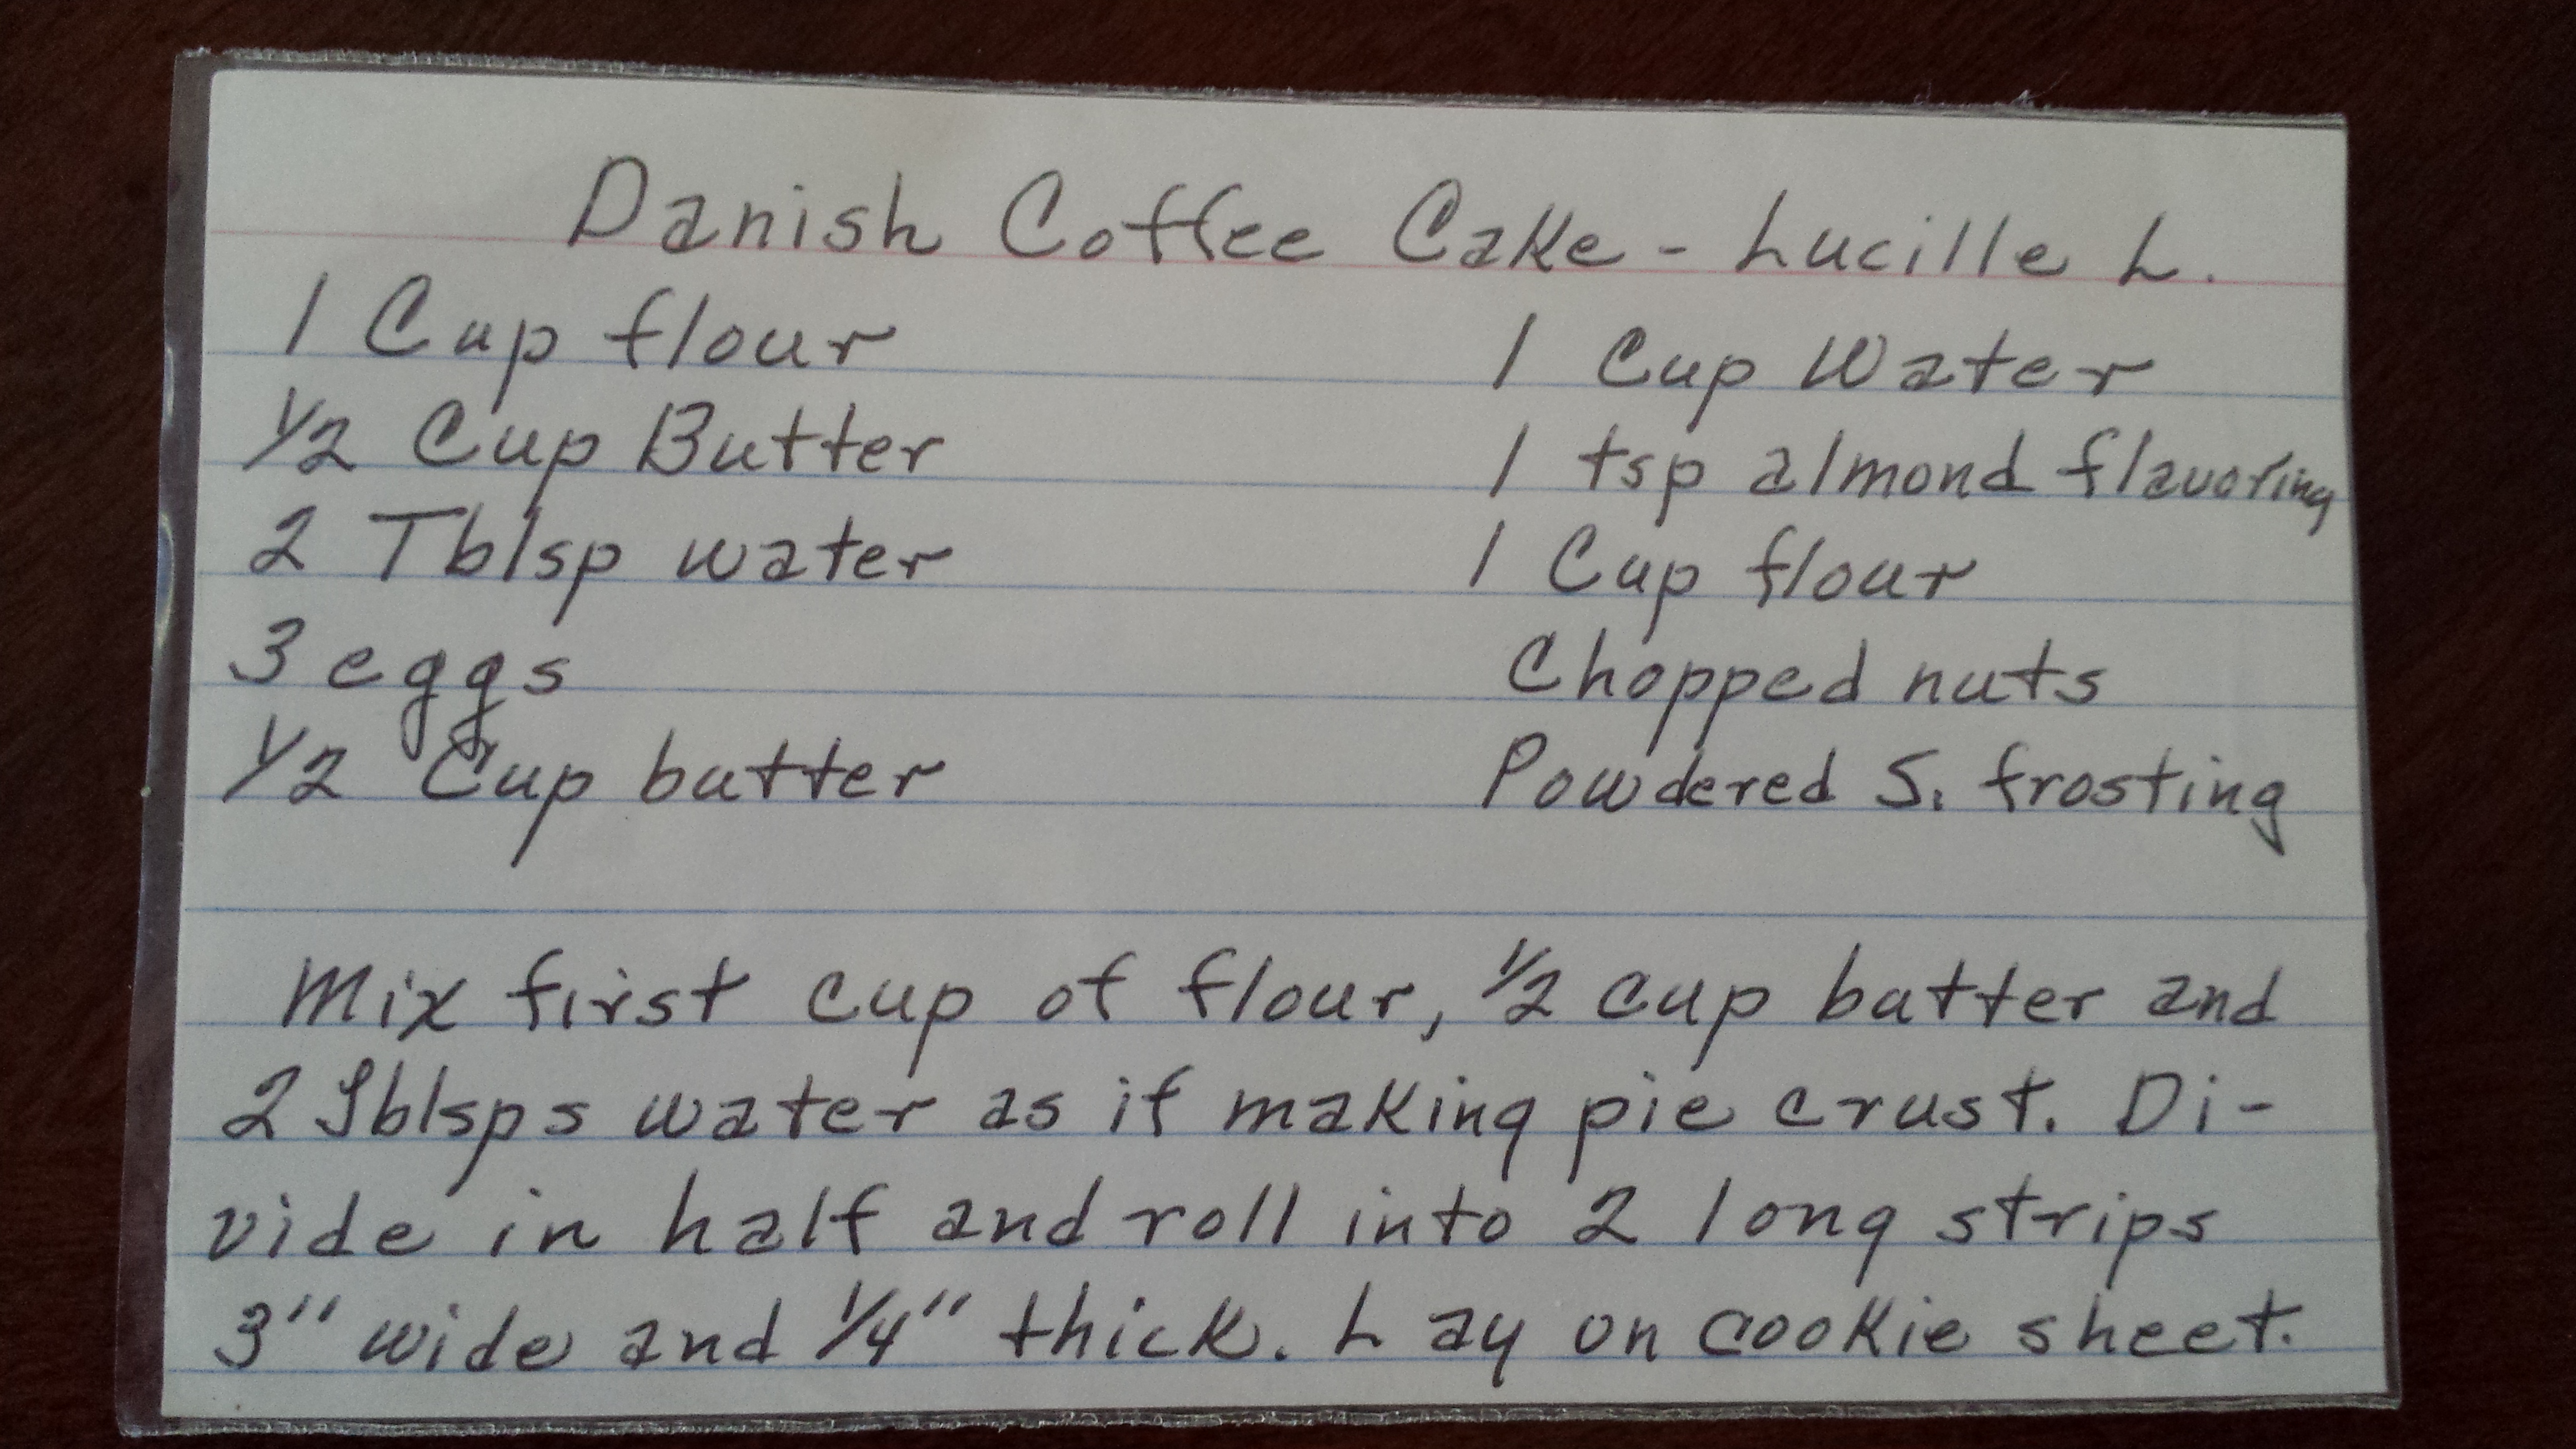 Danish Coffee Cake - Lucille L.
1 Cup flour
1/2 Cup Butter
2 Tblsp water
3 eggs
1/2 Cup butter
1 Cup Water
1 tsp almond flavoring
1 Cup flour
Chopped nuts
Powdered S. frosting
Mix first cup of flour, 1/2 cup butter and
2 Tblsps water as if making pie crust. Di-
vide in half and roll into 2 long strips
3" wide and 1/4" thick. Lay on cookie sheet.